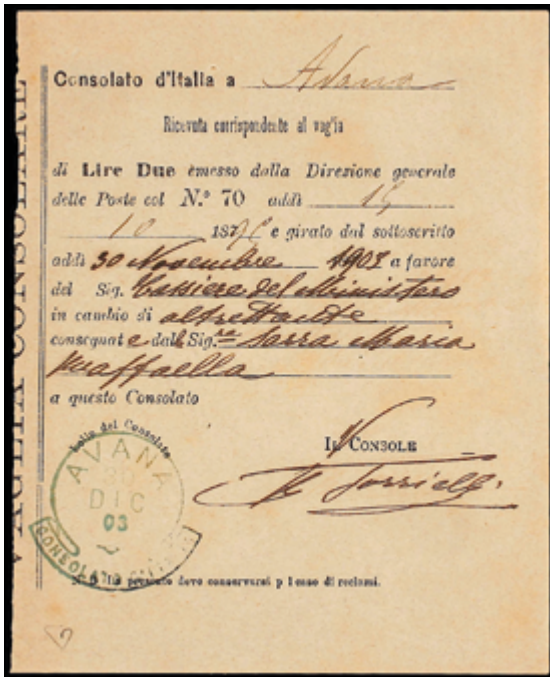 VAGLIA CONSOLARE
Consolato d'Italia a Avana
Ricevuta corrispondente al vaglia
di Lire Due emesso dalla Direzione generale
delle Poste col N.º 70 addì
10 187 e girato dal sottoscritto
addì 30 Novembre 1903 a favore
del Sig. Cassiere del Ministero
in cambio di altrettante
consegnate dalle Sig.ra Sarra Maria
Raffaella
a questo Consolato
Bollo del Consolato
IL CONSOLE
AVANA
30
DIC
03
CONSOLATO
N.B. La presente deve conservarsi p l caso di reclami.